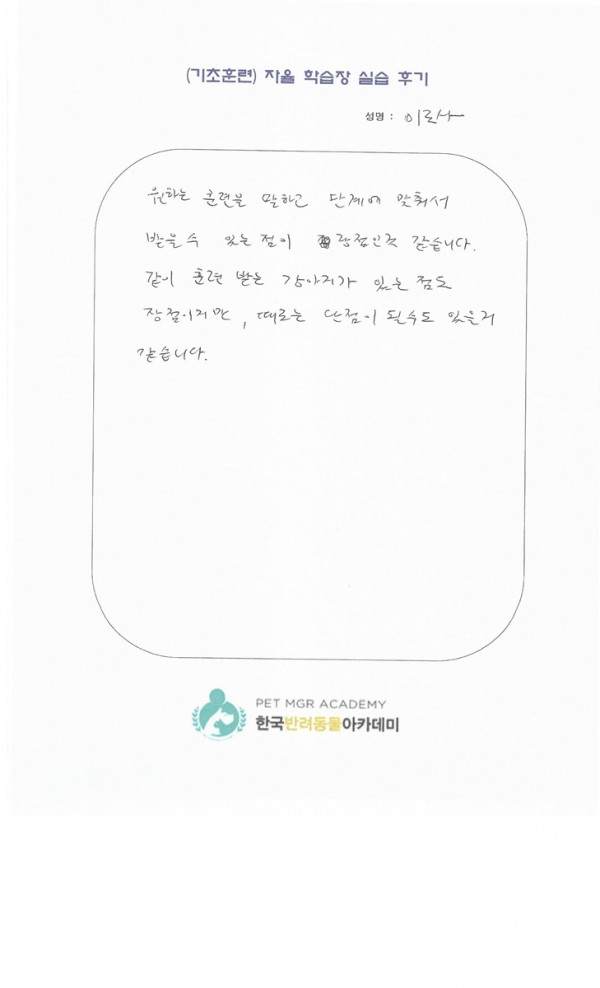 (기초훈련) 자율 학습장 실습 후기
성명 : 이로사
원하는 훈련을 말하고 단계에 맞춰서
받을 수 있는 점이 장점인것 같습니다.
같이 훈련 받는 강아지가 있는 점도
장점이지만, 때로는 단점이 될수도 있을거
같습니다.
PET MGR ACADEMY
한국반려동물아카데미